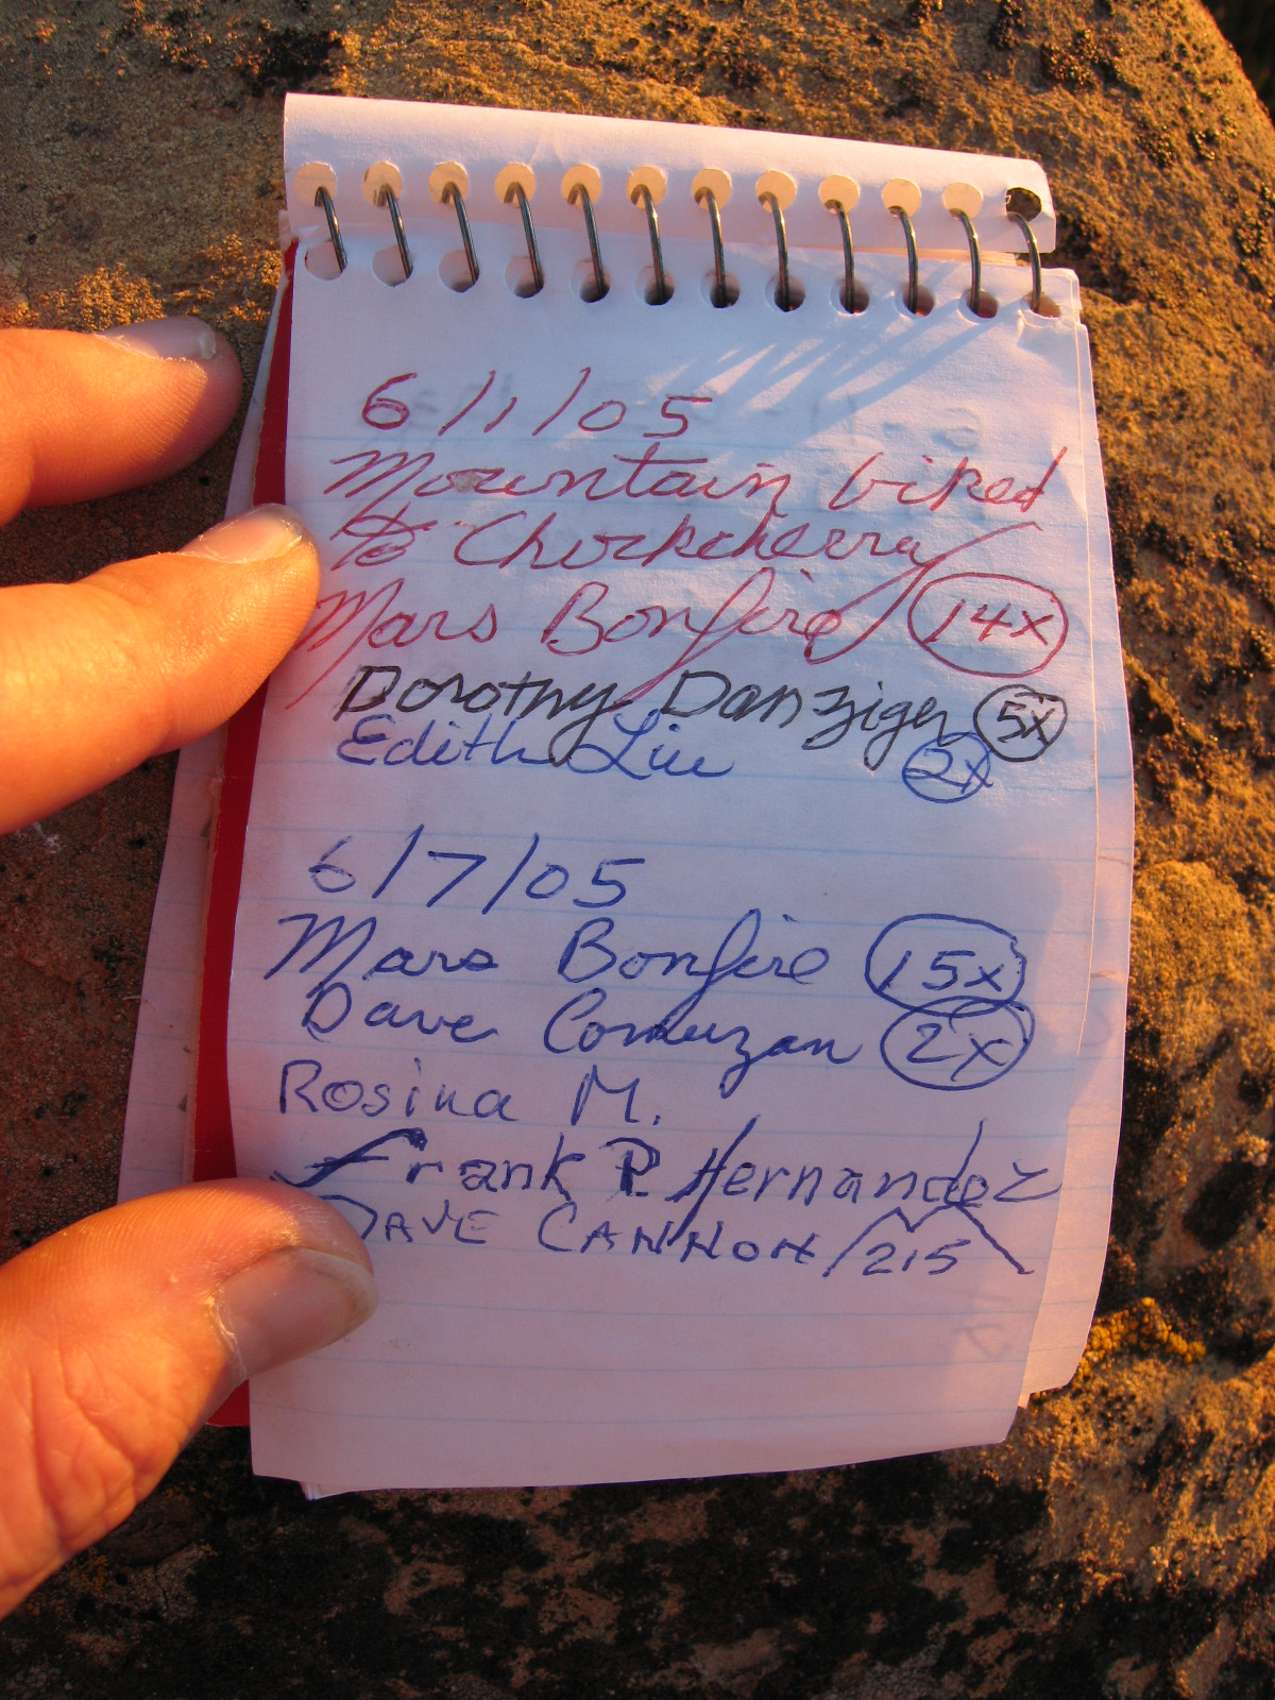 6/1/05
Mountain biked
to Chockcherry
Mars Bonfire 14x
Dorothy Danziger 5x
Edith Liu 2x
6/7/05
Mars Bonfire 15x
Dave Comerzan 2x
Rosina M.
Frank P. Hernandez
DAVE CANNON 215